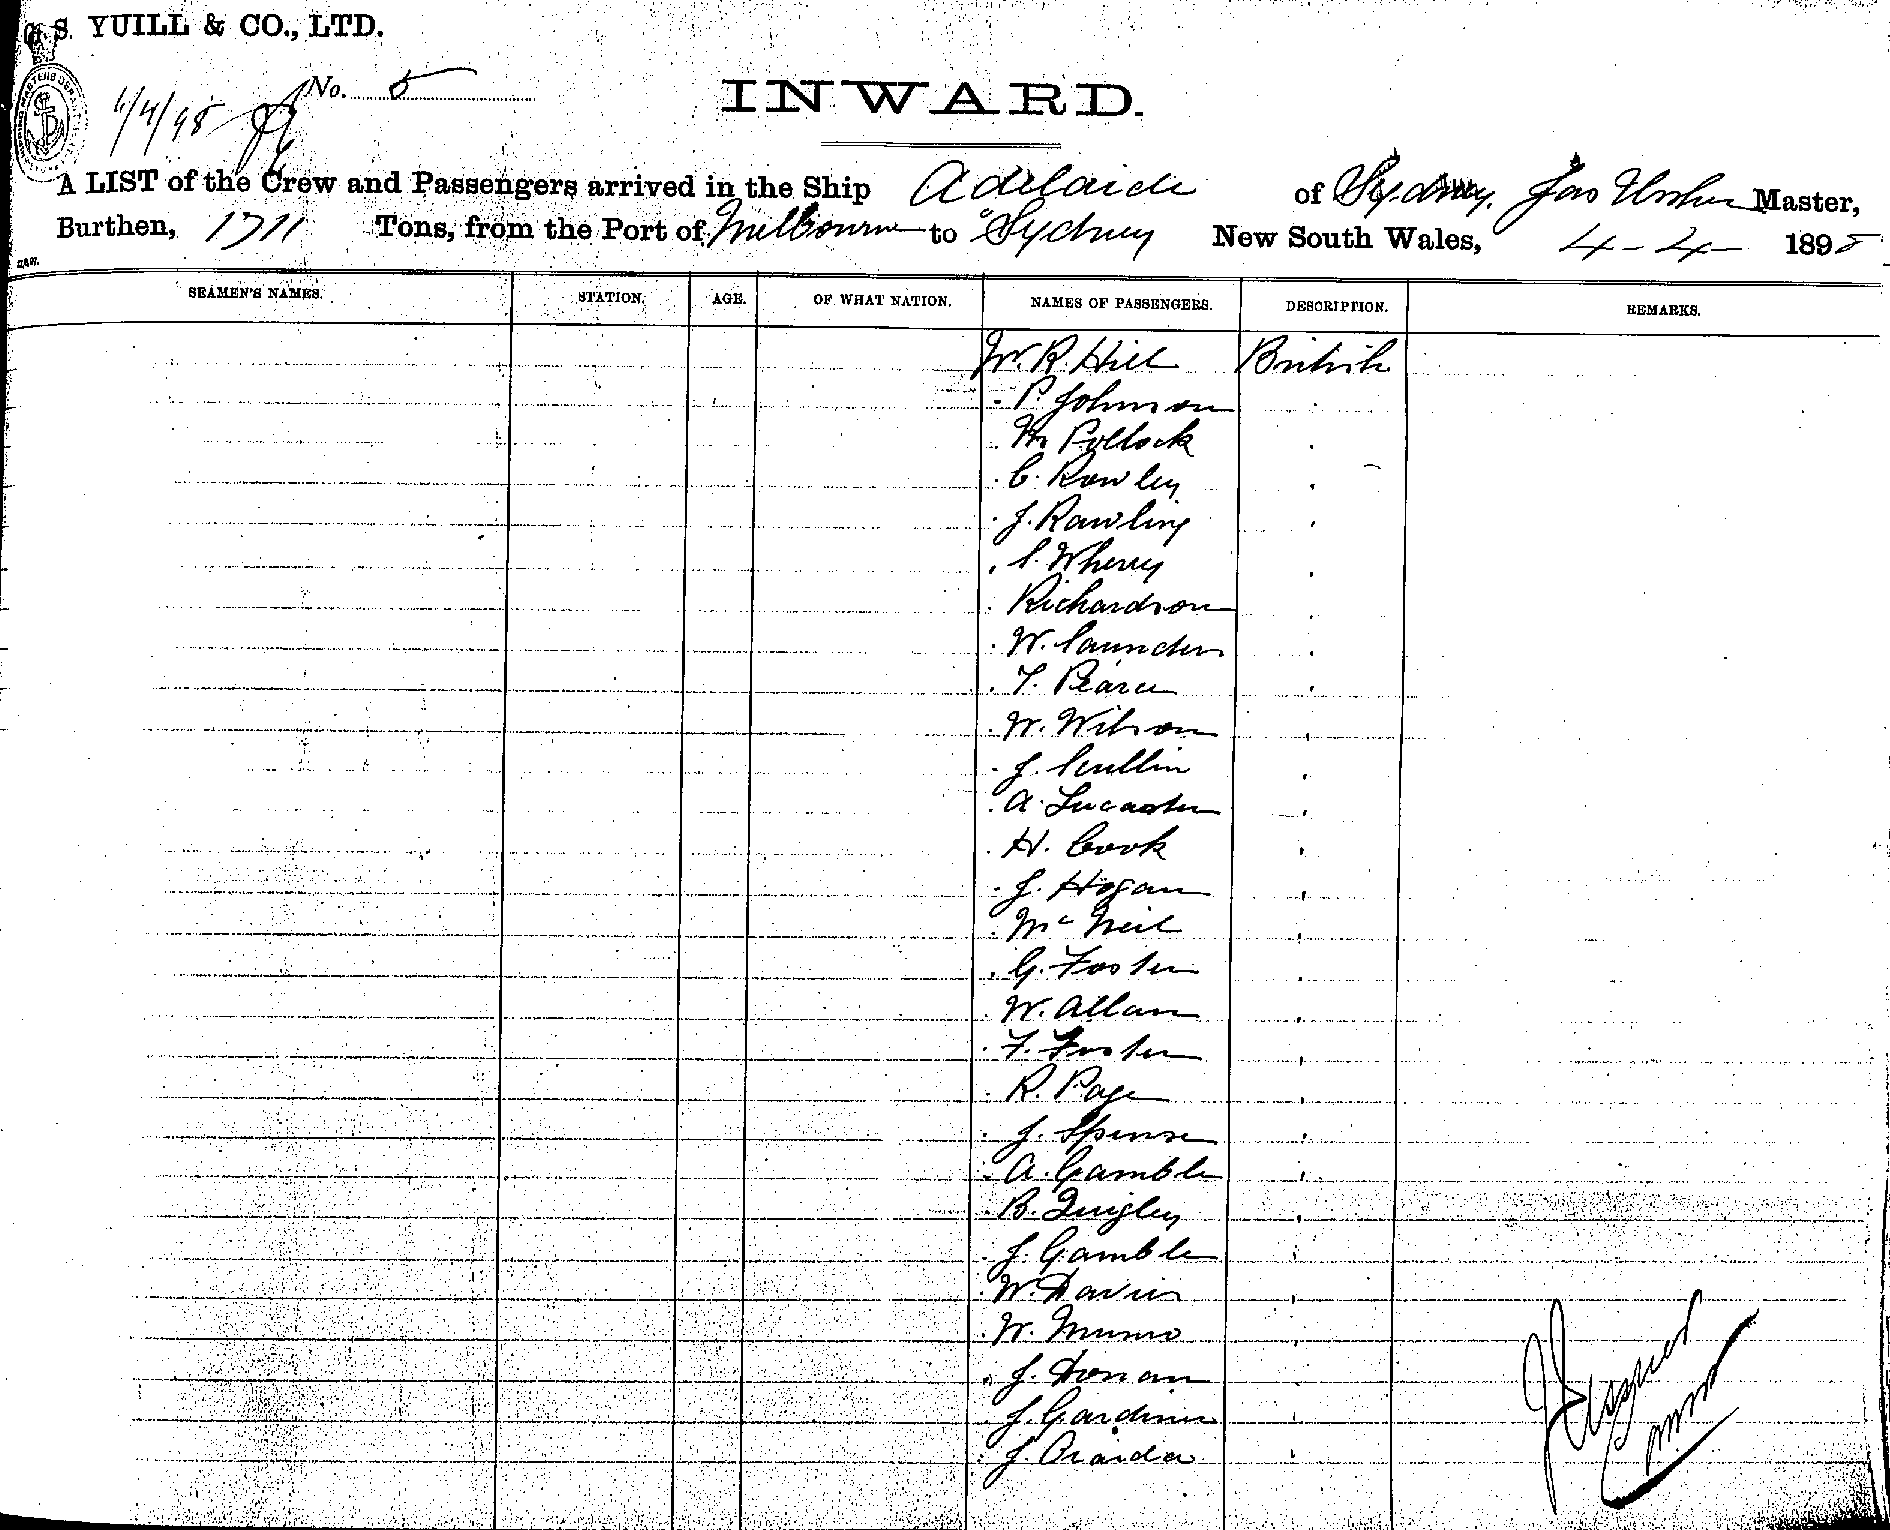 G. S. YUILL & CO., LTD.
No. 5
INWARD.
A LIST of the Crew and Passengers arrived in the Ship Adelaide of Sydney, Jas Ussher Master,
Burthen, 1711 Tons, from the Port of Melbourne to Sydney New South Wales, 4-4- 1898
SEAMEN'S NAMES. STATION. AGE. OF WHAT NATION. NAMES OF PASSENGERS. DESCRIPTION. REMARKS.
W. R. Hill British
P. Johnson
Pollock
C. Rowley
J. Rawling
S. Wherry
Richardson
W. Saunders
T. Pearce
W. Wilson
J. Scullin
A. Lucaster
H. Cook
J. Hogan
McNeil
G. Foster
W. Allan
F. Foster
R. Page
J. Spense
A. Gamble
B. Quigley
J. Gamble
W. Davies
W. Munro
J. Donan
J. Gardiner
J.